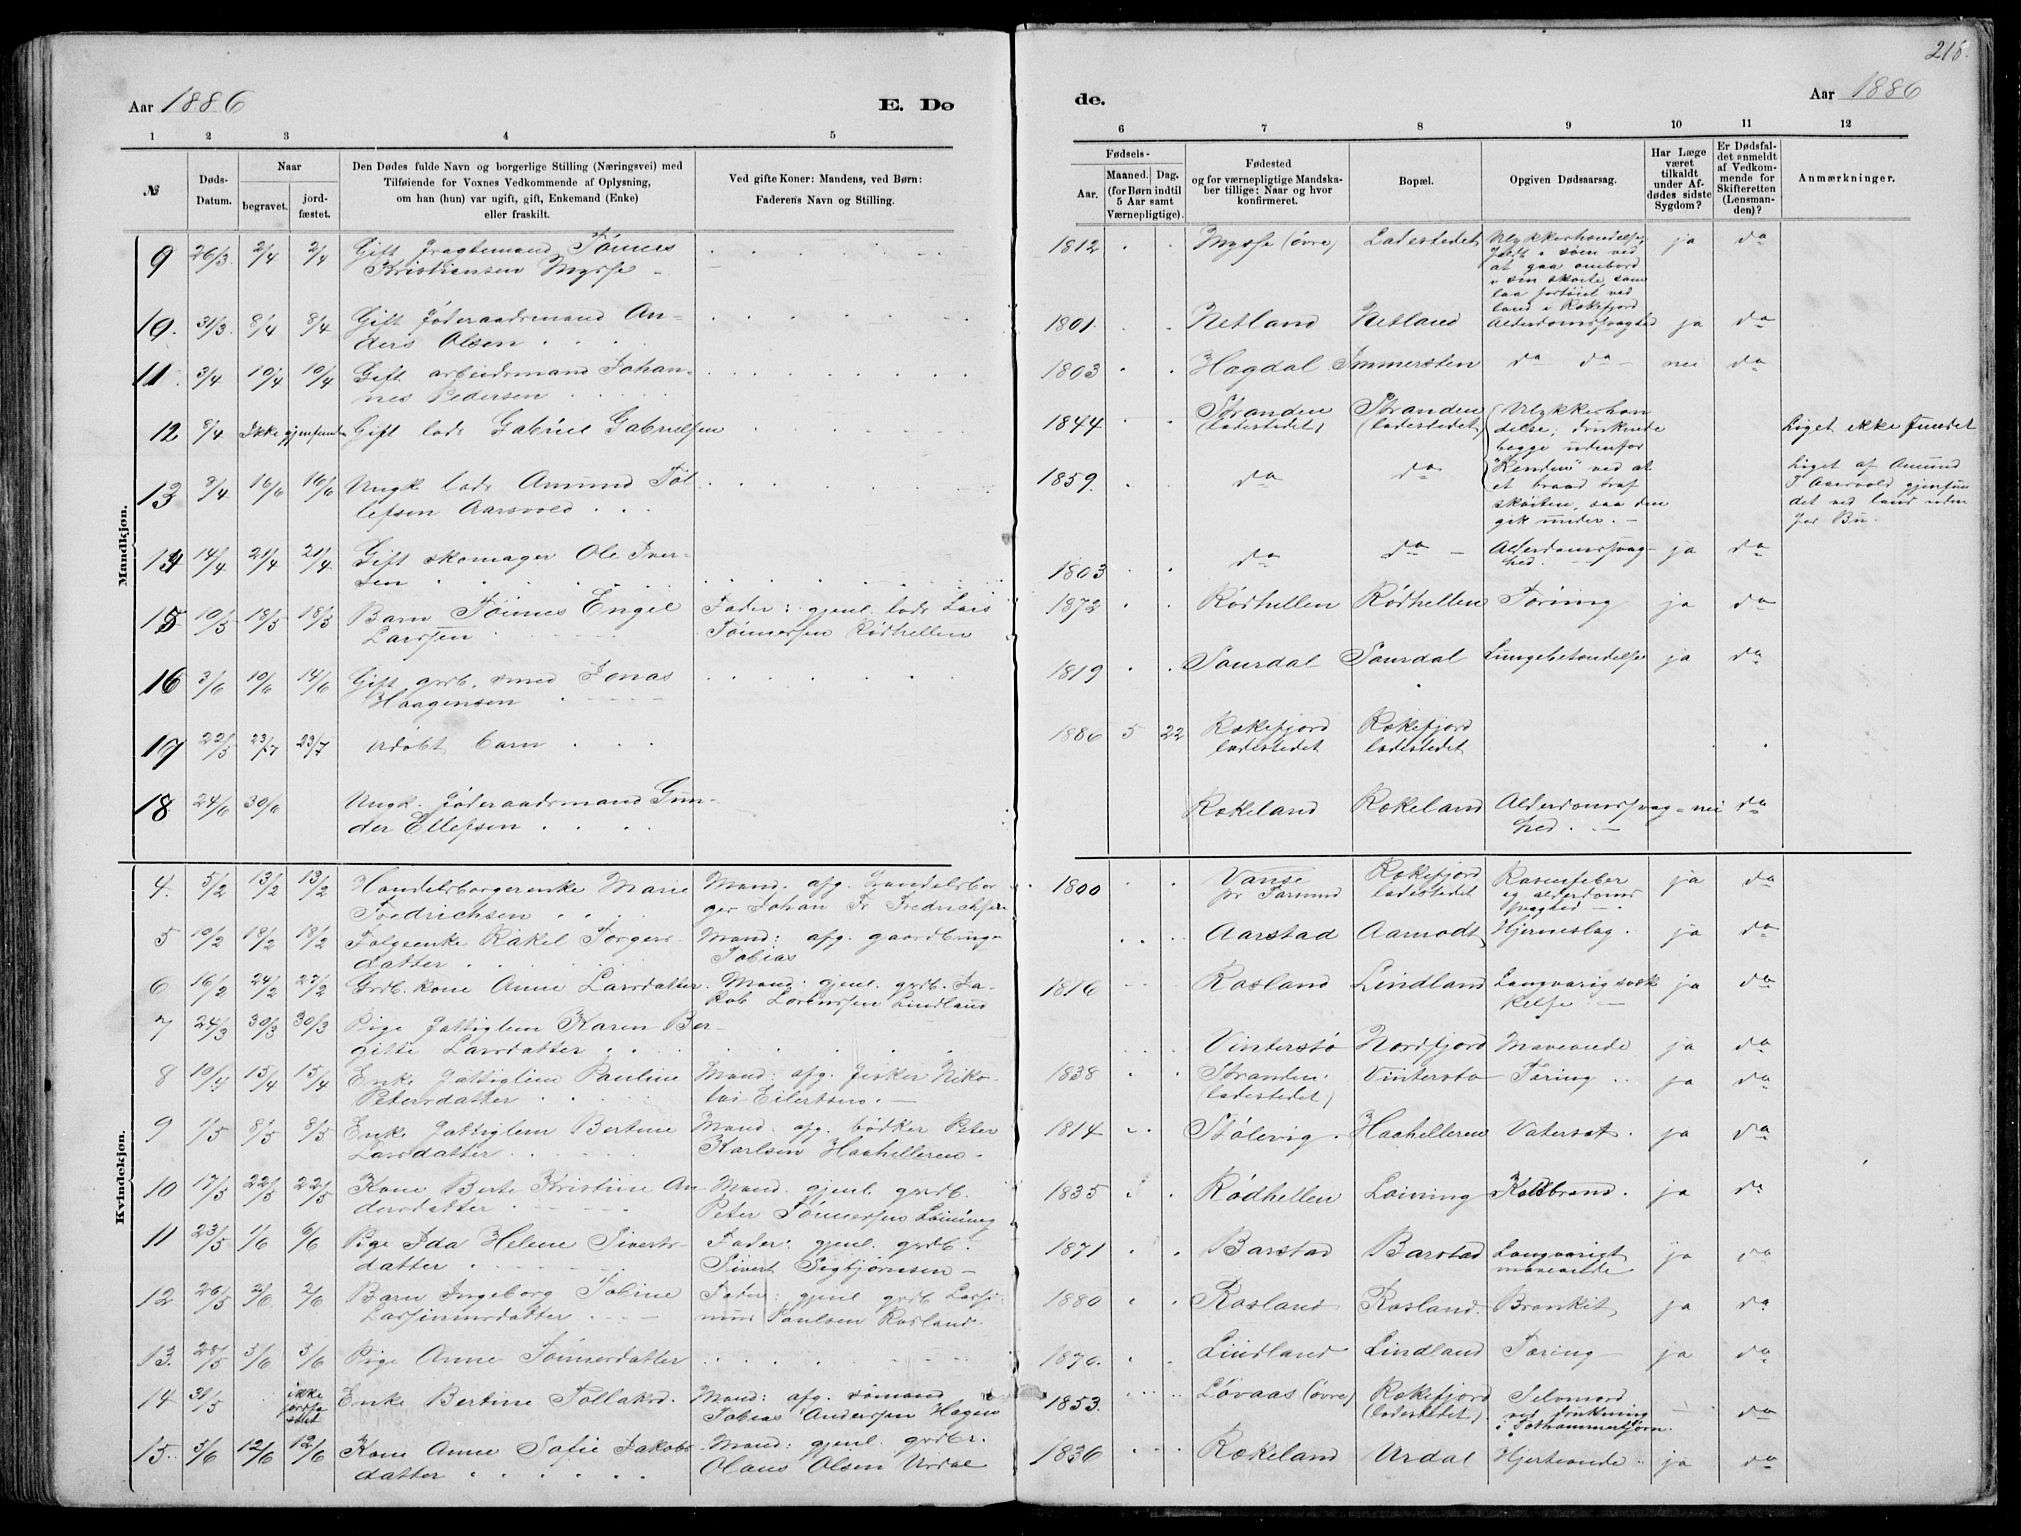 218.
Aar 1886
E. Dø
de.
Aar 1886
1 2 3 4 5
6 7 8 9 10 11 12
№
Døds-
Datum.
Naar
begravet.
jord-
fæstet.
Den Dødes fulde Navn og borgerlige Stilling (Næringsvei) med
Tilføiende for Voxnes Vedkommende af Oplysning,
om han (hun) var ugift, gift, Enkemand (Enke)
eller fraskilt.
Ved gifte Koner: Mandens, ved Børn:
Faderens Navn og Stilling.
Fødsels-
Aar.
Maaned. Dag.
(for Børn indtil
5 Aar samt
Værnepligtige).
Fødested
og for værnepligtige Mandska-
ber tillige: Naar og hvor
konfirmeret.
Bopæl.
Opgiven Dødsaarsag.
Har Læge
været
tilkaldt
under Af-
dødes sidste
Sygdom?
Er Dødsfal-
det anmeldt
af Vedkom-
mende for
Skifteretten
(Lensman-
den)?
Anmærkninger.
Mandkjøn.
9 26/3 2/4 2/4 Gift fragtemand Tönnes
Kristiansen Mysse
1812 Mysse (övre) Ladestedet Ulykkeshændelse, ja do
faldt i søen ved
at gaa ombord
i sin skøite, som
laa fortøiet ved
land i Rekefjord
10. 31/3 8/4 8/4 Gift föderaadsmand An-
ders Olsen
1801. Netland Netland Alderdomssvaghed ja do
11. 3/4 10/4 10/4 Gift arbeidsmand Johan-
nes Pedersen
1803 Hægdal Immersten do do nei do
12 8/4 Ikke gjenfunden Gift lods Gabriel Gabrielsen
1844 Stranden (ladestedet) Stranden (ladestedet) Ulykkeshæn
delse; druknede
begge udenfor
"Renden" ved at
et braad traf
skøiten, saa den
gik under.
Liget ikke fundet
13 8/4 16/6 16/6 Ungk. lods Amund Tøl
lefsen Aarsvold
1859. do do
Liget af Amund
T Aarsvold gjenfun
det ved land uden
for Bu.
14 14/4 21/4 21/4 Gift skomager Ole Iver-
sen
1803 do do Alderdomssvag-
hed. ja do
15 10/5 18/5 18/5 Barn Tönnes Engel
Larssen
Fader: gjenl. lods Lars
Tönnessen Rödhellen
1872 Rödhellen Rödhellen Tæring ja do
16 3/6 10/6 14/6 Gift grdb. smed Jonas
Haagensen
1819 Saurdal Saurdal Lungebetændelse ja do
17 22/5 23/7 23/7 udøbt barn
1886 5 22 Rekefjord
ladestedet Rekefjord
ladestedet
18 24/6 30/6 Ungk. föderaadsmand Gun-
der Ellefsen
Rækeland Rækeland Alderdomssvag-
hed. nei do
Kvindekjøn.
4. 5/2 13/2 13/2 Handelsborgerenke Marie
Fredrichsen
Mand. afg. handelsbor
ger Johan Fr Fredrichsen
1800 Vanse
pr Farsund Rekefjord
ladestedet Rosenfeber
og alderdoms
svaghed ja do
5 10/2 18/2 18/2 Folgeenke Rakel Torgers-
datter
Mand: afg. gaardbruger
Tobias
Aarstad Aamodt Hjerneslag. ja do
6 16/2 24/2 27/2 Grdb. kone Anne Larsdatter.
Mand: gjenl. grdb. Ja-
kob Lorentsen Lindland
1816 Rosland Lindland Langvarig svæk
kelse ja do
7 24/3 30/3 30/3 Pige fattiglem Karen Ber-
gitte Larsdatter
Vinterstø Nordfjord Maveonde ja do
8 10/4 15/4 15/4 Enke fattiglem Pauline
Petersdatter
Mand: afg. fisker Niko-
lai Eilertsen.
1838 Stranden.
(ladestedet) Vinterstø Tæring ja do
9 1/5 8/5 8/5 Enke fattiglem Bertine
Larsdatter
Mand. afg. bødker Peter
Karlsen Haahelleren.
1814 Stölevig. Haahelleren Vatersot. ja do
10 17/5 22/5 22/5 Kone Berte Kristine An
dersdatter
Mand. gjenl. grdb.
Peter Tönnessen Löining
1835 Rödhellen Löining Koldbrand. ja do
11 23/5 1/6 6/6 Pige Ida Helene Siverts-
datter
Fader: gjenl. grdb.
Sivert Sigbjørnsen
1871 Barstad Barstad Langvarigt
maveonde ja do
12 26/5 2/6 2/6 Barn Ingeborg Tobine
Larssinusdatter
Fader: gjenl grdb Larsi-
nus Paulsen Rosland.
1880 Rosland Rosland. Bronkit ja do
13. 28/5 3/6 3/6 Pige Anne Tönnesdatter
1870. Lindland Lindland Tæring ja do
14 31/5 ikke
jordfæ
stet Enke Bertine Tollaksd.
Mand: afg. sømand
Tobias Andersen Hagen
1853. Løvaas (övre) Rekefjord
(ladestedet). Selvmord
ved drukning do
15. 5/6 12/6 12/6 Kone Anne Sofie Jakobs-
datter
Mand: gjenl. grdbr.
Olaus Olsen Urdal
1836 Rækeland Urdal Hjerteonde ja do